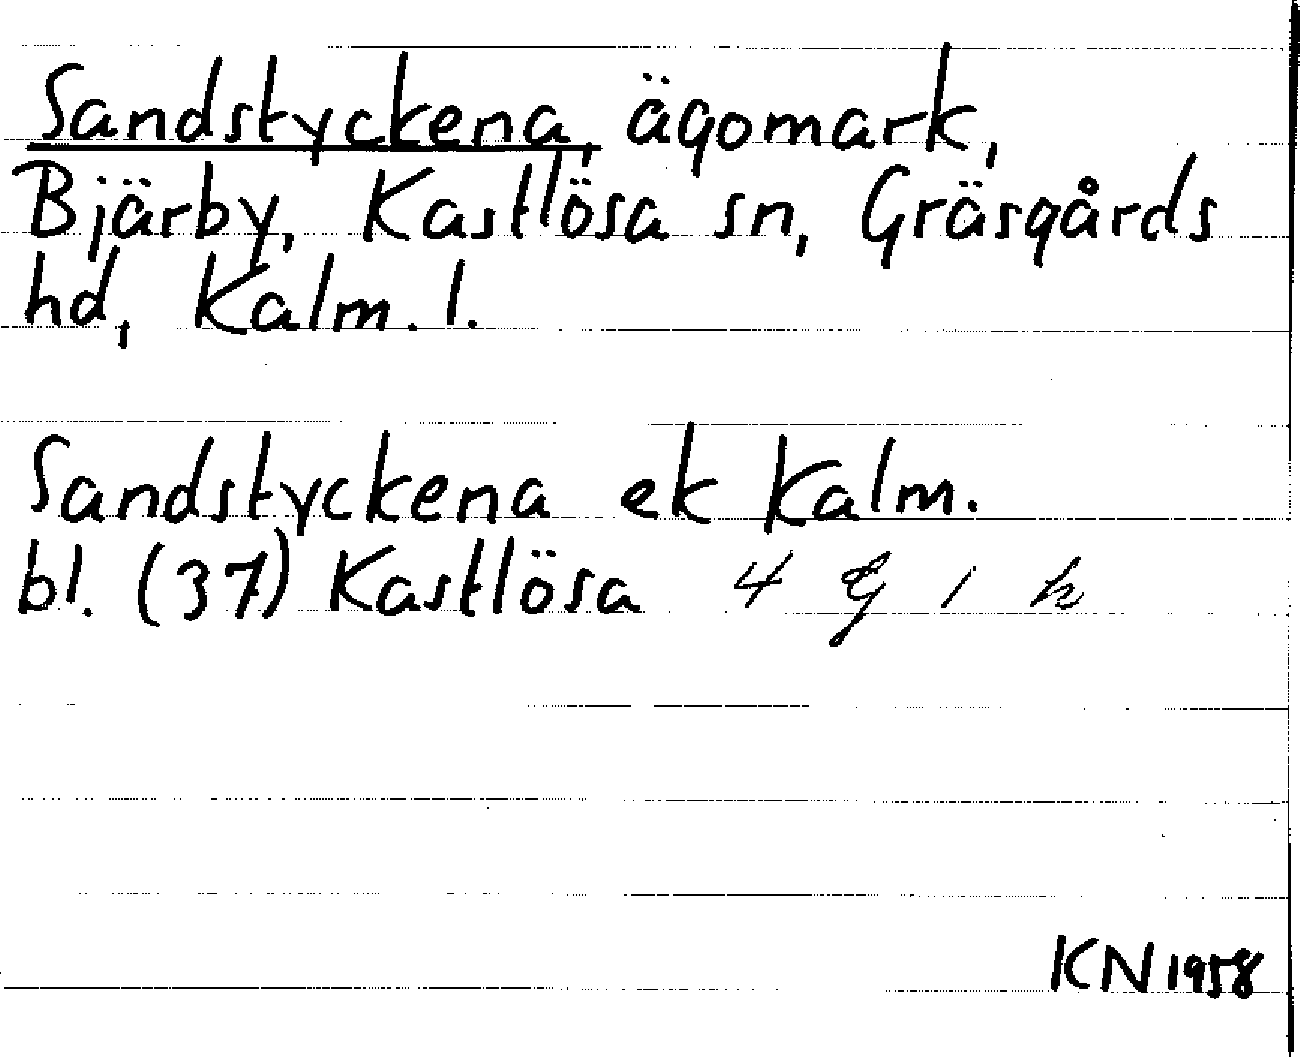 Sandstyckena, ägomark,
Bjärby, Kastlösa sn, Gräsgårds
hd, Kalm. l.
Sandstyckena ek Kalm.
bl. (37) Kastlösa 4 G 1 h
KN 1958